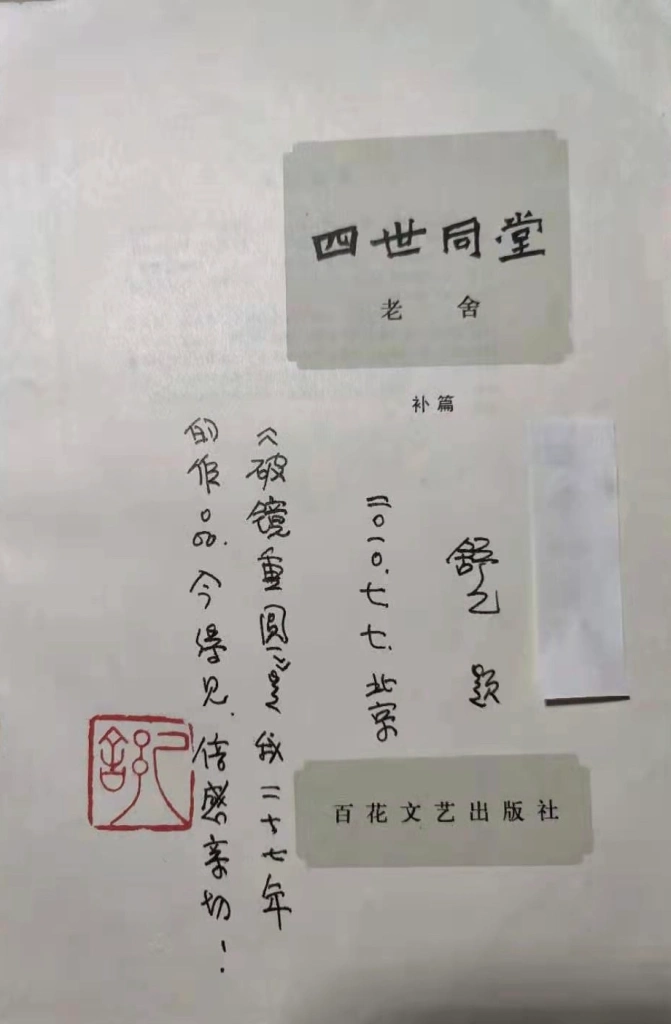 四世同堂
老舍
补篇
舒乙 题
二〇一〇.七七.北京
《破镜重圆》是我二十七年
的作品.今得见.倍感亲切!
百花文艺出版社